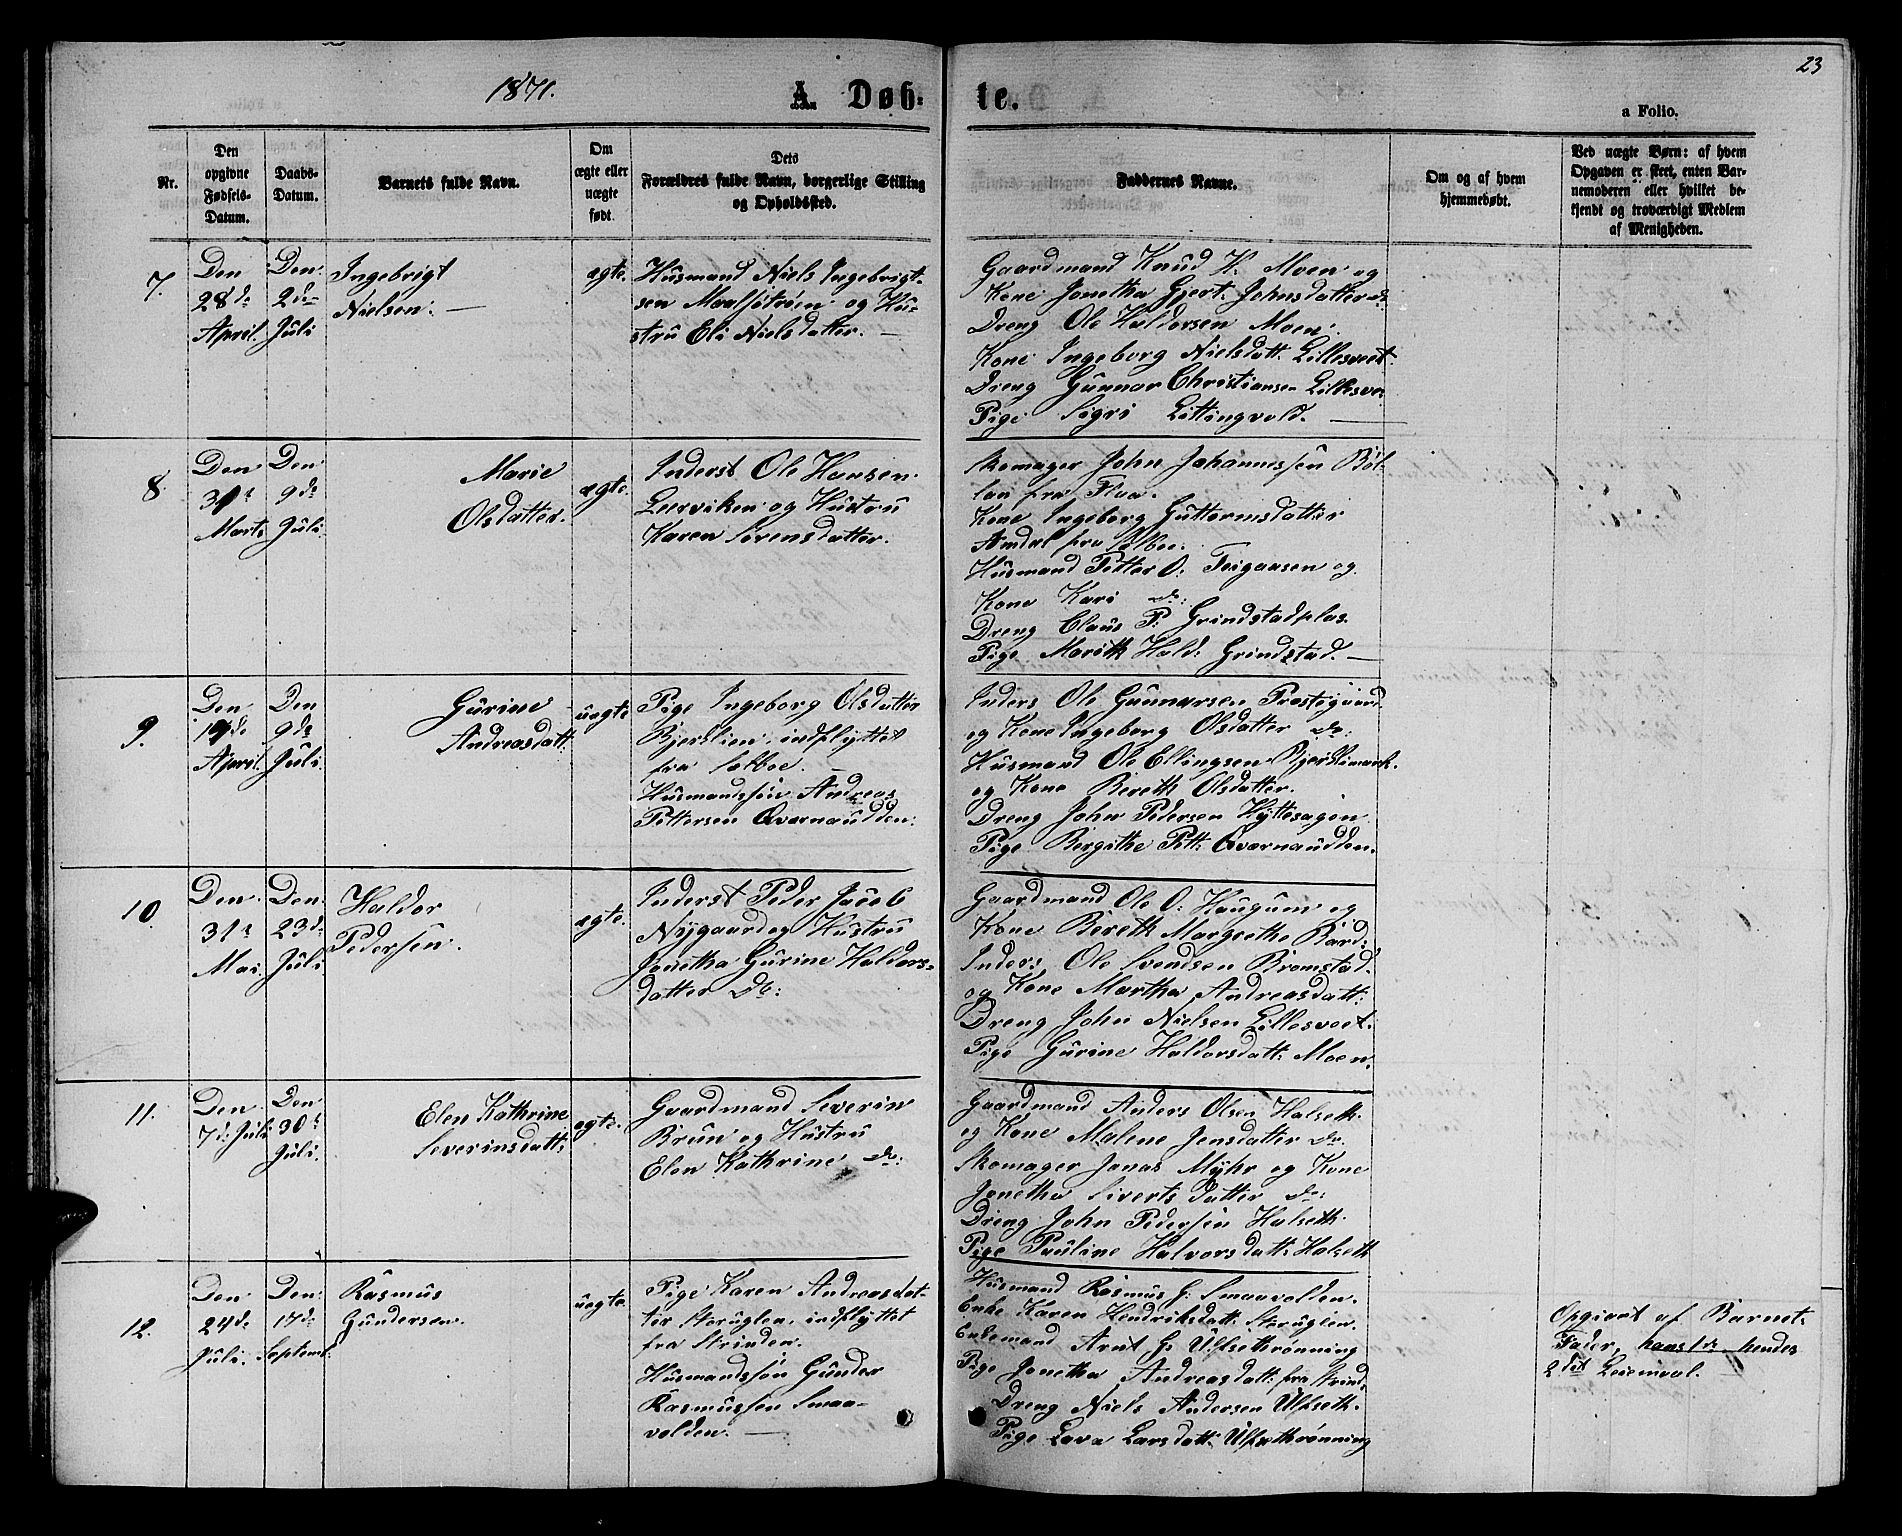 23
1871.
A. Døb-
te.
a Folio.
Nr.
Den
opgivne
Fødsels-
Datum.
Daabs-
Datum.
Barnets fulde Navn.
Om
ægte eller
uægte
født.
Dets
Forældres fulde Navn, borgerlige Stilling
og Opholdssted.
Faddernes Navne.
Om og af hvem
hjemmedøbt.
Ved uægte Børn: af hvem
Opgaven er skeet, enten Bar-
nemoderen eller hvilket be-
kjendt og troværdigt Medlem
af Menigheden.
7.
Den
28de
April.
Den
2den
Juli
Ingebrigt
Nielsen.
ægte.
Husmand Niels Ingebrigt-
sen Maalsøtrøen og Hu-
stru Eli Nielsdatter.
Gaardmand Knud H. Moen og
Kone Jonetha Gjert. Johnsdatter do
Dreng Ole Haldorsen Moen.
Kone Ingeborg Nielsdatt. Lillesveet
Dreng Gunnar Christiansen Lillesve.
Pige Sigri Littingvold.
8.
Den
31te
Marts
Den
9de
Juli
Marie
Olsdatter.
ægte.
Inderst Ole Hansen
Leerviken og Hustru
Karen Sørensdatter.
Skomager John Johannessen Bøl-
lan fra Flaa.
Kone Ingeborg Guttormsdatter
Amdal fra Sælboe.
Husmand Petter O. Teigaasen og
Kone Kari do:
Dreng Claus P. Grindstadplas
Pige Marith Hald. Grindstad.
9.
Den
19de
April
Den
9de
Juli.
Gurine
Andreasdatt.
uægte
Pige Ingeborg Olsdatter
Bjerklien, indflyttet
fra Sælboe.
Husmandssøn Andreas
Pettersen Qvernaudden.
Inders. Ole Gunnarsen Prestegaard
og Kone Ingeborg Olsdatter do:
Husmand Ole Ellingsen Bjerklimark.
og Kone Bereth Olsdatter.
Dreng John Pedersen Hyttesagen
Pige Bergithe Pett. Qværnaudden.
10.
Den
31te
Mai.
Den
23de
Juli
Haldor
Pedersen.
ægte.
Inderst Peder Jacob
Nygaard og Hustru
Jonetha Gurine Haldors-
datter do:
Gaardmand Ole O. Haugum og
Kone Bereth Margrethe Bard:
Inders. Ole Svendsen Bromstad.
og Kone Martha Andreasdatt:
Dreng John Nielsen Lillesveet.
Pige Gurine Haldorsdatt. Moen.
11.
Den
7de Juli
Den
30te
Juli.
Elen Kathrine
Severinsdatt.
ægte.
Gaardmand Severin
Brun og Hustru
Elen Kathrine do:
Gaardmand Anders Olsen Halseth
og Kone Malene Jensdatter do.
Skomager Jonas Myhr og Kone
Jonetha Sivertsdatter do:
Dreng John Pedersen Halseth.
Pige Pauline Halvorsdatt. Halseth
12.
Den
24de
Juli.
Den
17de
Septemb.
Rasmus
Gundersen.
uægte.
Pige Karen Andreasdat-
ter Storuglen, indflyttet
fra Strinden.
Husmandssøn Gunder
Rasmussen Smaa-
volden.
Husmand Rasmus G. Smaavolden.
Enke Karen Hendriksdatt. Storuglen.
Enkemand Arnt G. Ulfsethrønning
Pige Jonetha Andreasdatt. fra Strind.
Dreng Niels Andersen Ulfseth.
Pige Lava Larsdatt. Ulfsethrønning
Opgivet af Barnets
Fader, hans 1ste hendes
2det Leiermaal.